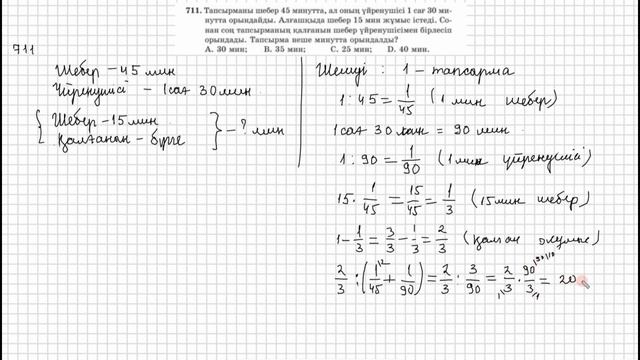 711. Тапсырманы шебер 45 минутта, ал оның үйренушісі 1 сағ 30 ми-
нутта орындайды. Алғашқыда шебер 15 мин жұмыс істеді. Со-
нан соң тапсырманың қалғанын шебер үйренушісімен бірлесіп
орындады. Тапсырма неше минутта орындалды?
А. 30 мин; В. 35 мин; С. 25 мин; D. 40 мин.
711
Шебер – 45 мин
Үйренушісі – 1 сағ 30 мин
Шебер – 15 мин
Қалғанын – бірге
– ? мин
Шешуі : 1 – тапсырма
1 : 45 = 1/45 (1 мин шебер)
1 сағ 30 мин = 90 мин
1 : 90 = 1/90 (1 мин үйренушісі)
15 · 1/45 = 15/45 = 1/3 (15 мин шебер)
1 – 1/3 = 3/3 – 1/3 = 2/3 (қалған жұмыс)
2/3 : (1/45 + 1/90) = 2/3 : 3/90 = 2/3 · 90/3 = 20